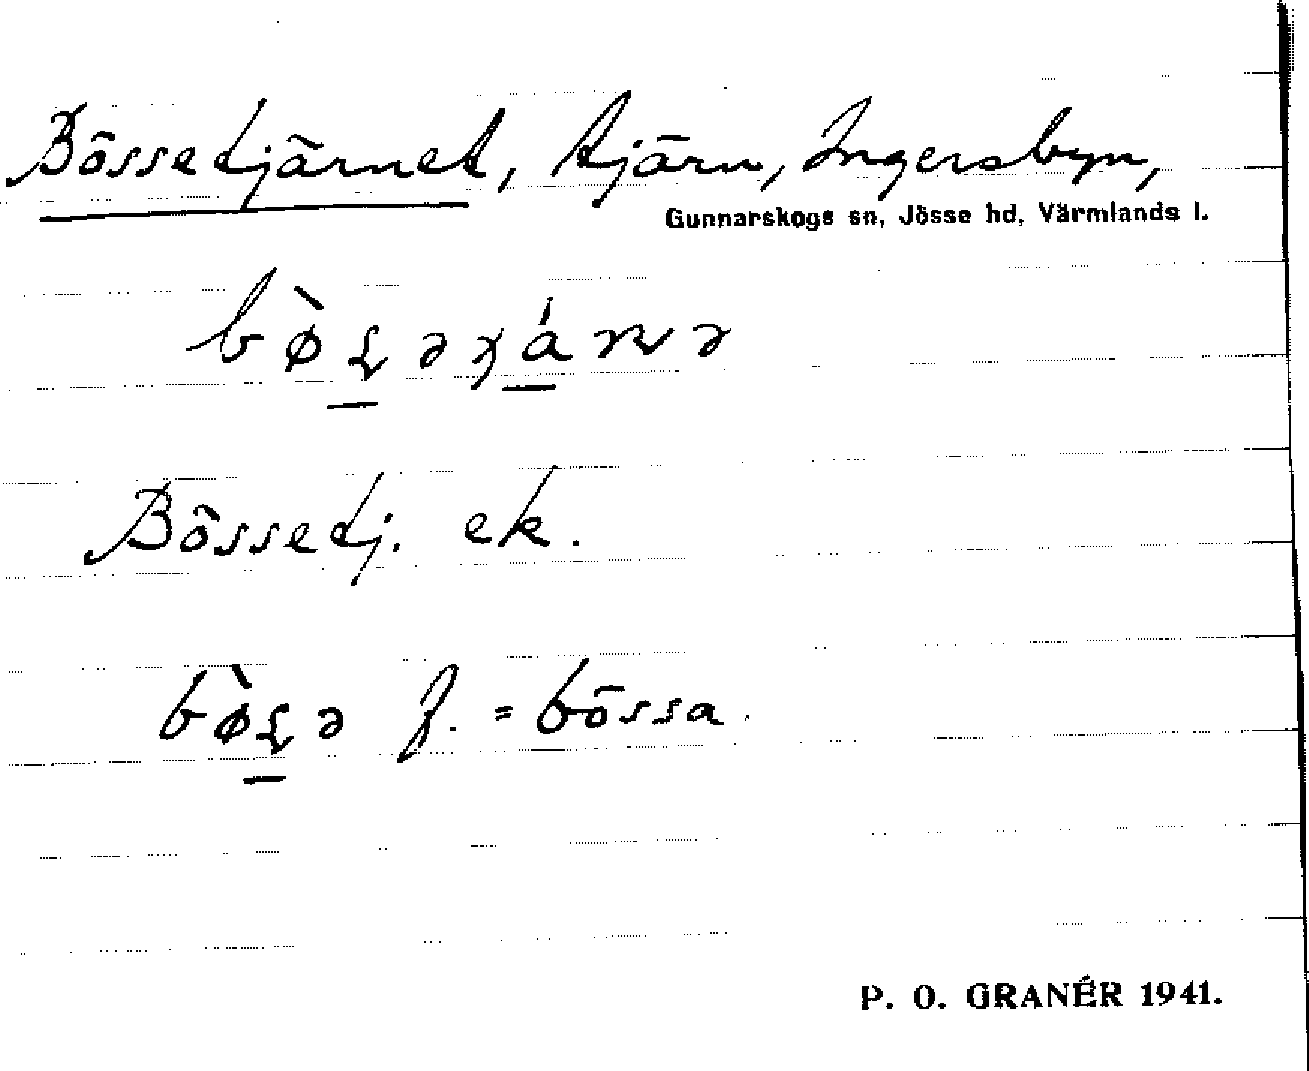 Bössetjärnet, tjärn, Ingersbyn,
Gunnarskogs sn, Jösse hd, Värmlands l.
Bössetj. ek.
f. = bössa.
P. O. GRANÉR 1941.